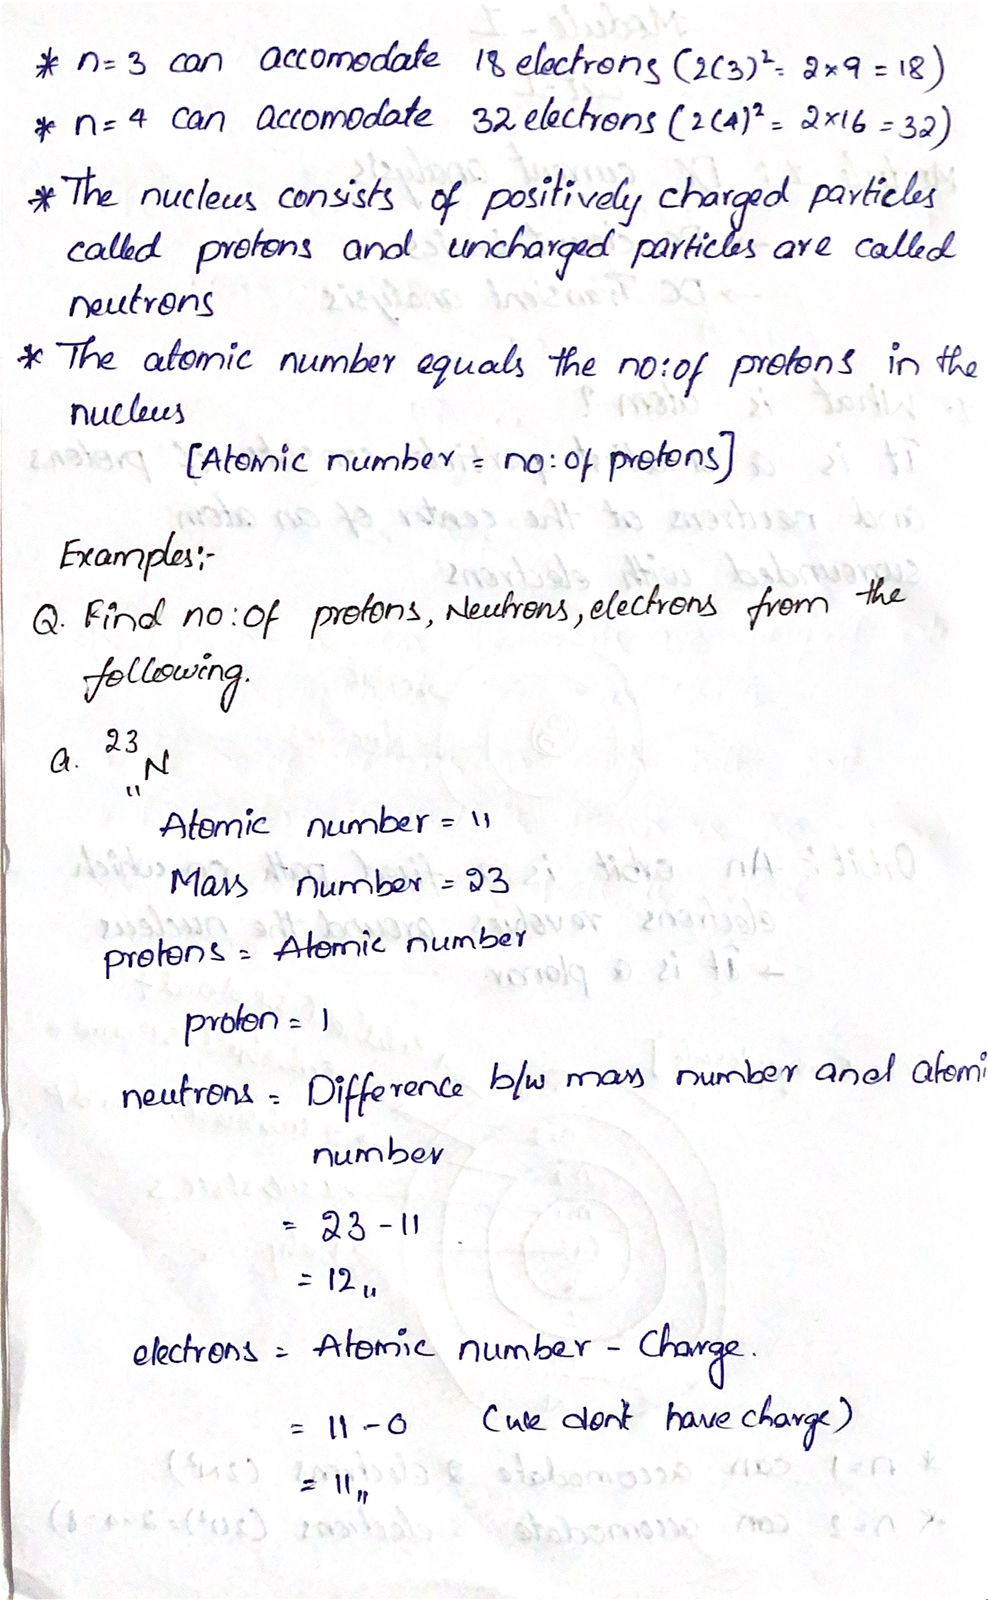 * n=3 can accomodate 18 electrons (2(3)²= 2×9 = 18)
* n=4 can accomodate 32 electrons (2(4)² = 2×16 = 32)
* The nucleus consists of positively charged particles
called protons and uncharged particles are called
neutrons
* The atomic number equals the no:of protons in the
nucleus
[Atomic number = no:of protons]
Examples:-
Q. Find no:of protons, Neutrons, electrons from the
following.
a. ²³₁₁N
Atomic number = 11
Mass number = 23
protons = Atomic number
proton = 1
neutrons = Difference b/w mass number and atomi
number
= 23 - 11
= 12 „
electrons = Atomic number - Charge.
= 11 - 0 (we dont have charge)
= 11 „